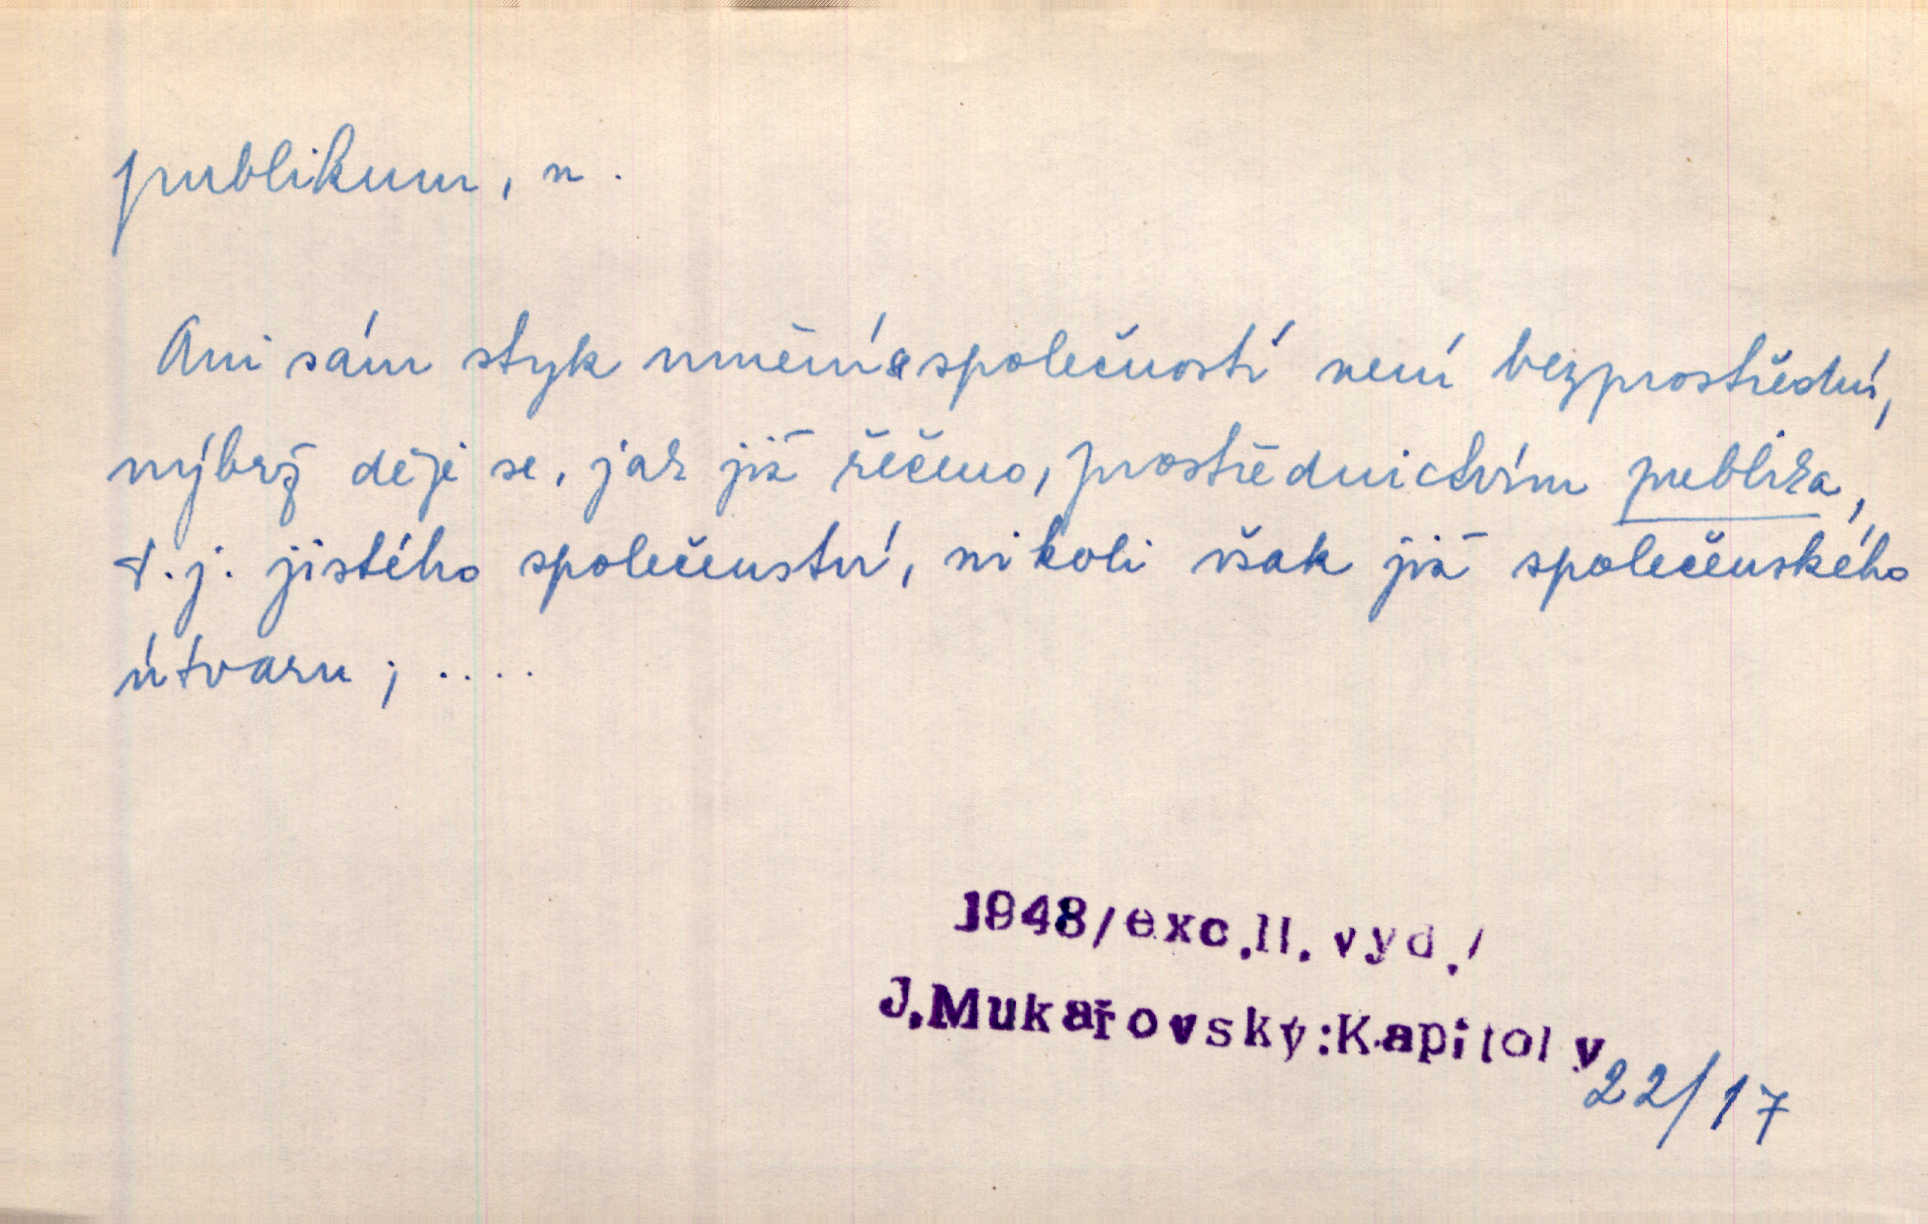 publikum, n.
Ani sám styk umění s společností není bezprostřední,
nýbrž děje se, jak již řečeno, prostřednictvím publika,
t.j. jistého společenství, nikoli však již společenského
útvaru; ....
1948/exc.II. vyd./
J.Mukařovský:Kapitoly
22/17